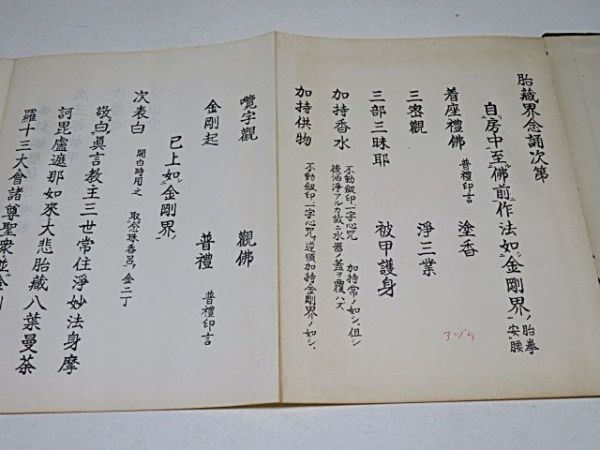 胎藏界念誦次第
自房中至佛前作法如金剛界ノ胎拳安腰
着座禮佛 普禮印言 塗香
三密觀 淨三業
三部三昧耶 被甲護身
アヅク
加持香水 不動劔印一字心咒 加持常ノ如シ、但シ
後洒淨アルカ故ニ水器ノ蓋ヲ覆ハズ
加持供物 不動劔印一字心咒、逆順加持金剛界ノ如シ、
嚂字觀 觀佛
金剛起 普禮 普禮印言
已上如金剛界
次表白 開白時用之 取念珠香呂、金二丁
敬白眞言教主三世常住淨妙法身摩
訶毘盧遮那如來大悲胎藏八葉曼荼
羅十三大會諸尊聖衆並